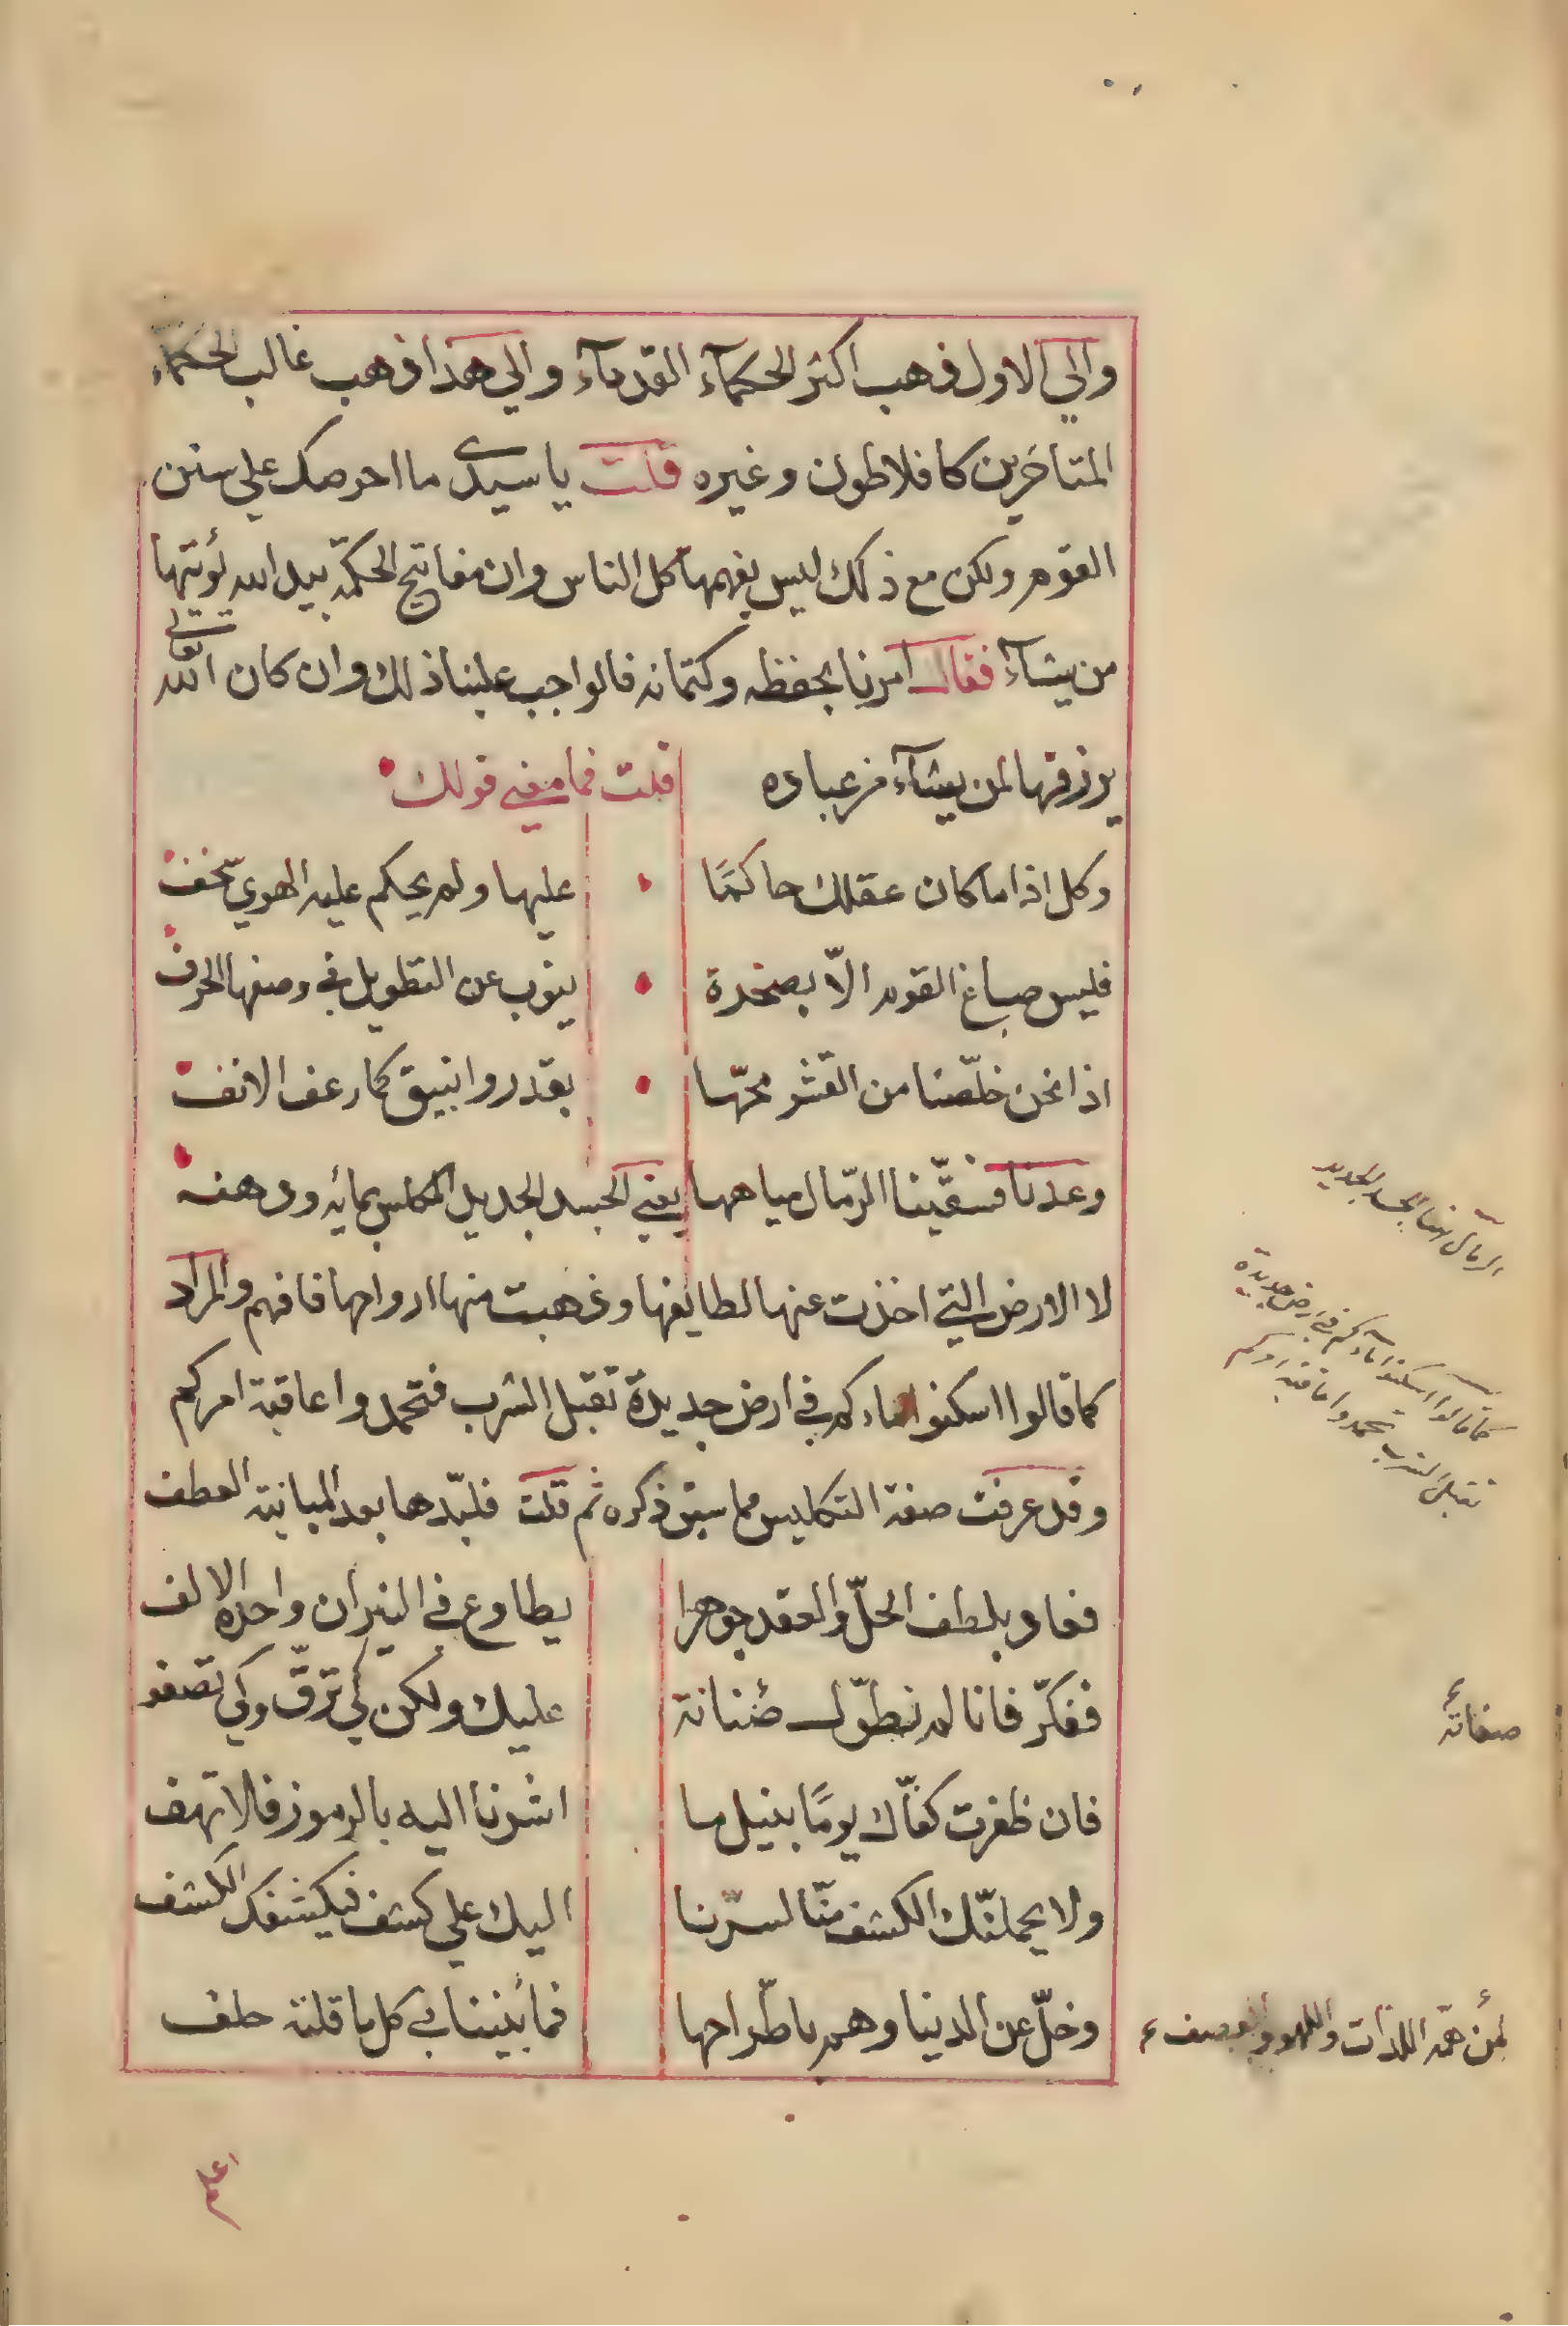 والي الاول ذهب اكثر الحكمآء القدمآء والي هذا ذهب غالب الحكمآء
المتاخرين كافلاطون وغيره قلت يا سيدي ما احرصك علي سنن
القوم ولكن مع ذلك ليس يفهمها كل الناس وان مفاتيح الحكمة بيد الله يؤتيها
من يشآء فقال امرنا بحفظه وكتمانه فالواجب علينا ذلك وان كان الله تعالي
يرزقها لمن يشآء من عباده قلت فما معني قولك
وكل اذا ما كان عقلك حاكمًا عليها ولم يحكم عليه الهوي سخف
فليس صباغ القوم الاّ بصخرة ينوب عن التطويل في وصفها الحرف
اذا نحن خلّصنا من القشر محّها بقدر وانبيق كما رعف الانف
وعدنا فسقّينا الرّمال مياهها يعني الجسد الجديد المكلس بمائه ودهنه
لا الارض التي اخذت عنها لطايفها وذهبت منها ارواحها فافهم والمراد
كما قالوا اسكنوا ماءكم في ارض جديدة تقبل الشرب فتحمدوا عاقبة امركم
وقد عرفت صفة التكليس مما سبق ذكره ثم قلت فلبّدها بعد المباينة العطف
فعاد بلطف الحلّ والعقد جوهرا يطاوع في النيران واحده الالف
ففكّر فانا لم نطوّل ضنانة عليك ولكن كي ترقّ وكي تصفو
فان ظفرت كفّاك يومًا بنيل ما اشرنا اليه بالرموز فلا تهف
ولا يحملنّك الكشف منّا لسرّنا اليك علي كشف فيكشفك الكشف
وخلّ عن الدنيا وهم باطّراحها فما بيننا في كل ما قلته حلف
الرمال هنا الجسد الجديد
كما قالوا اسكنوا مآءكم في ارض جديدة
تقبل الشرب تحمدوا عاقبة امركم
صفاته
لمن همه اللذات واللهو والقصف
اعلم